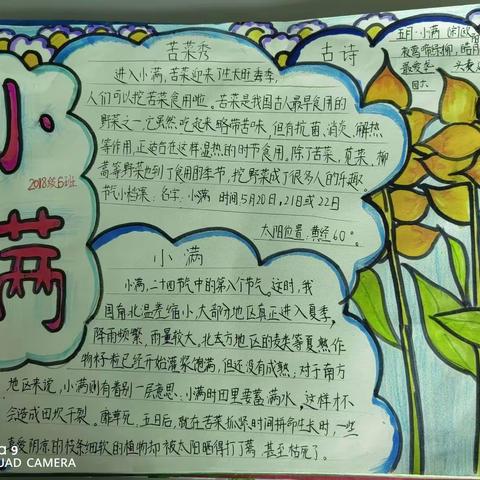 小满
2018级6班
苦菜秀
进入小满,苦菜迎来了生长旺春季,
人们可以挖苦菜食用啦。苦菜是我国古人最早食用的
野菜之一,它虽然吃起来略带苦味,但有抗菌、消炎、解热
等作用,正适合在这样温热的时节食用。除了苦菜,苋菜、柳
蒿等野菜也到了食用的季节,挖野菜成了很多人的乐趣。
节气小档案:名字:小满 时间5月20日,21日或22日
太阳位置:黄经60°。
古诗
五月·小满
小满
小满,二十四节气中的第八个节气。这时,我
国南北温差缩小,大部分地区真正进入夏季,
降雨频繁,雨量较大,北方地区的麦类等夏熟作
物籽粒已经开始灌浆饱满,但还没有成熟;对于南方
地区来说,小满则有着别一层意思:小满时田里要蓄满水,这样才不
会造成田坎干裂。靡草死,五日后,就在苦菜抓紧时间拼命生长时,一些
喜爱阴凉的枝条细软的植物却被太阳晒得打了蔫,甚至枯死了。
QUAD CAMERA